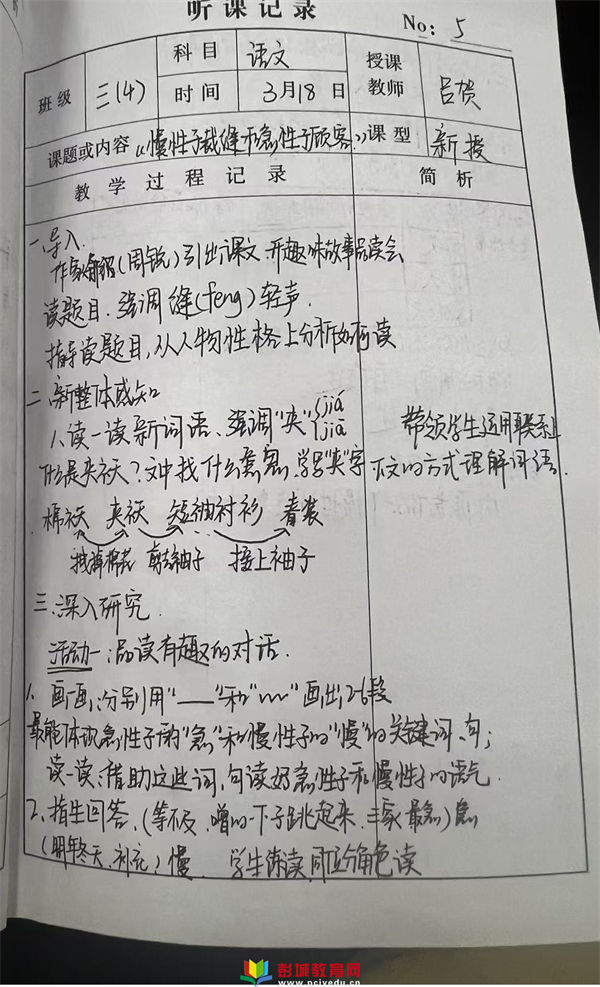 听课记录
No: 5
班级 三(4) 科目 语文 授课教师 吕贺
时间 3月18日
课题或内容 《慢性子裁缝和急性子顾客》 课型 新授
教学过程记录 简析
一、导入.
作家介绍(周锐)引出课文.开趣味故事品读会
读题目.强调缝(feng)轻声.
指导读题目,从人物性格上分析如何读
二、新整体感知
1.读一读新词语、强调"夹"{jiá jiā
什么是夹袄?文中找 学"夹"字
带领学生运用联系上
下文的方式理解词语.
棉袄 夹袄 短袖衬衫 春装
拽掉棉花 剪去袖子 接上袖子
三、深入研究.
活动一:品读有趣的对话.
1.画一画:分别用"——"和"﹏﹏"画出2-6段
最能体现急性子的"急"和慢性子的"慢"的关键词、句;
读一读:借助这些词、句读好急性子和慢性子的语气.
2、指生回答.(等不及、噌的一下子跳起来、 最急)急
(明年冬天、补充)慢. 学生练读,同位分角色读
彭城教育网
www.pcjyedu.cn